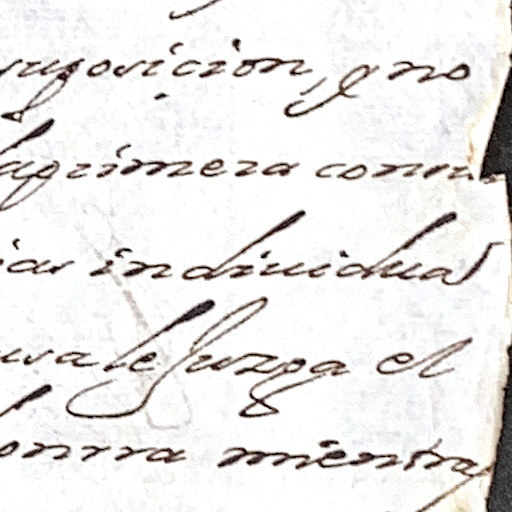 suposicion, q no
la primera conn
ias individual
usa le Juzga el
honrra mientra